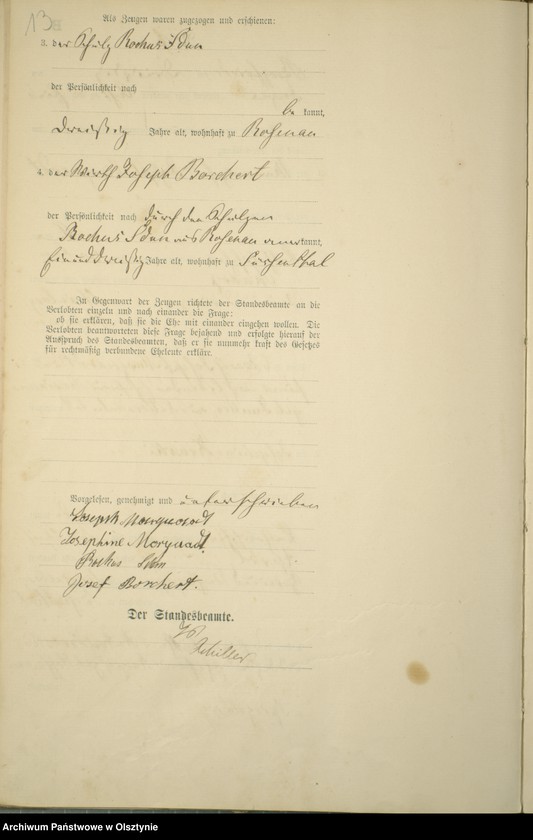 13
Als Zeugen waren zugezogen und erschienen:
3. der Schulz Rochus
der Persönlichkeit nach
be kannt,
dreißig Jahre alt, wohnhaft zu Rosenau
4. der Wirth Joseph Borchert
der Persönlichkeit nach durch den Schulzen
Rochus aus Rosenau anerkannt,
Einunddreißig Jahre alt, wohnhaft zu
In Gegenwart der Zeugen richtete der Standesbeamte an die
Verlobten einzeln und nach einander die Frage:
ob sie erklären, daß sie die Ehe mit einander eingehen wollen. Die
Verlobten beantworteten diese Frage bejahend und erfolgte hierauf der
Ausspruch des Standesbeamten, daß er sie nunmehr kraft des Gesetzes
für rechtmäßig verbundene Eheleute erkläre.
Vorgelesen, genehmigt und unterschrieben
Joseph
Josephine
Rochus
Josef Borchert.
Der Standesbeamte.
Schiller
Archiwum Państwowe w Olsztynie